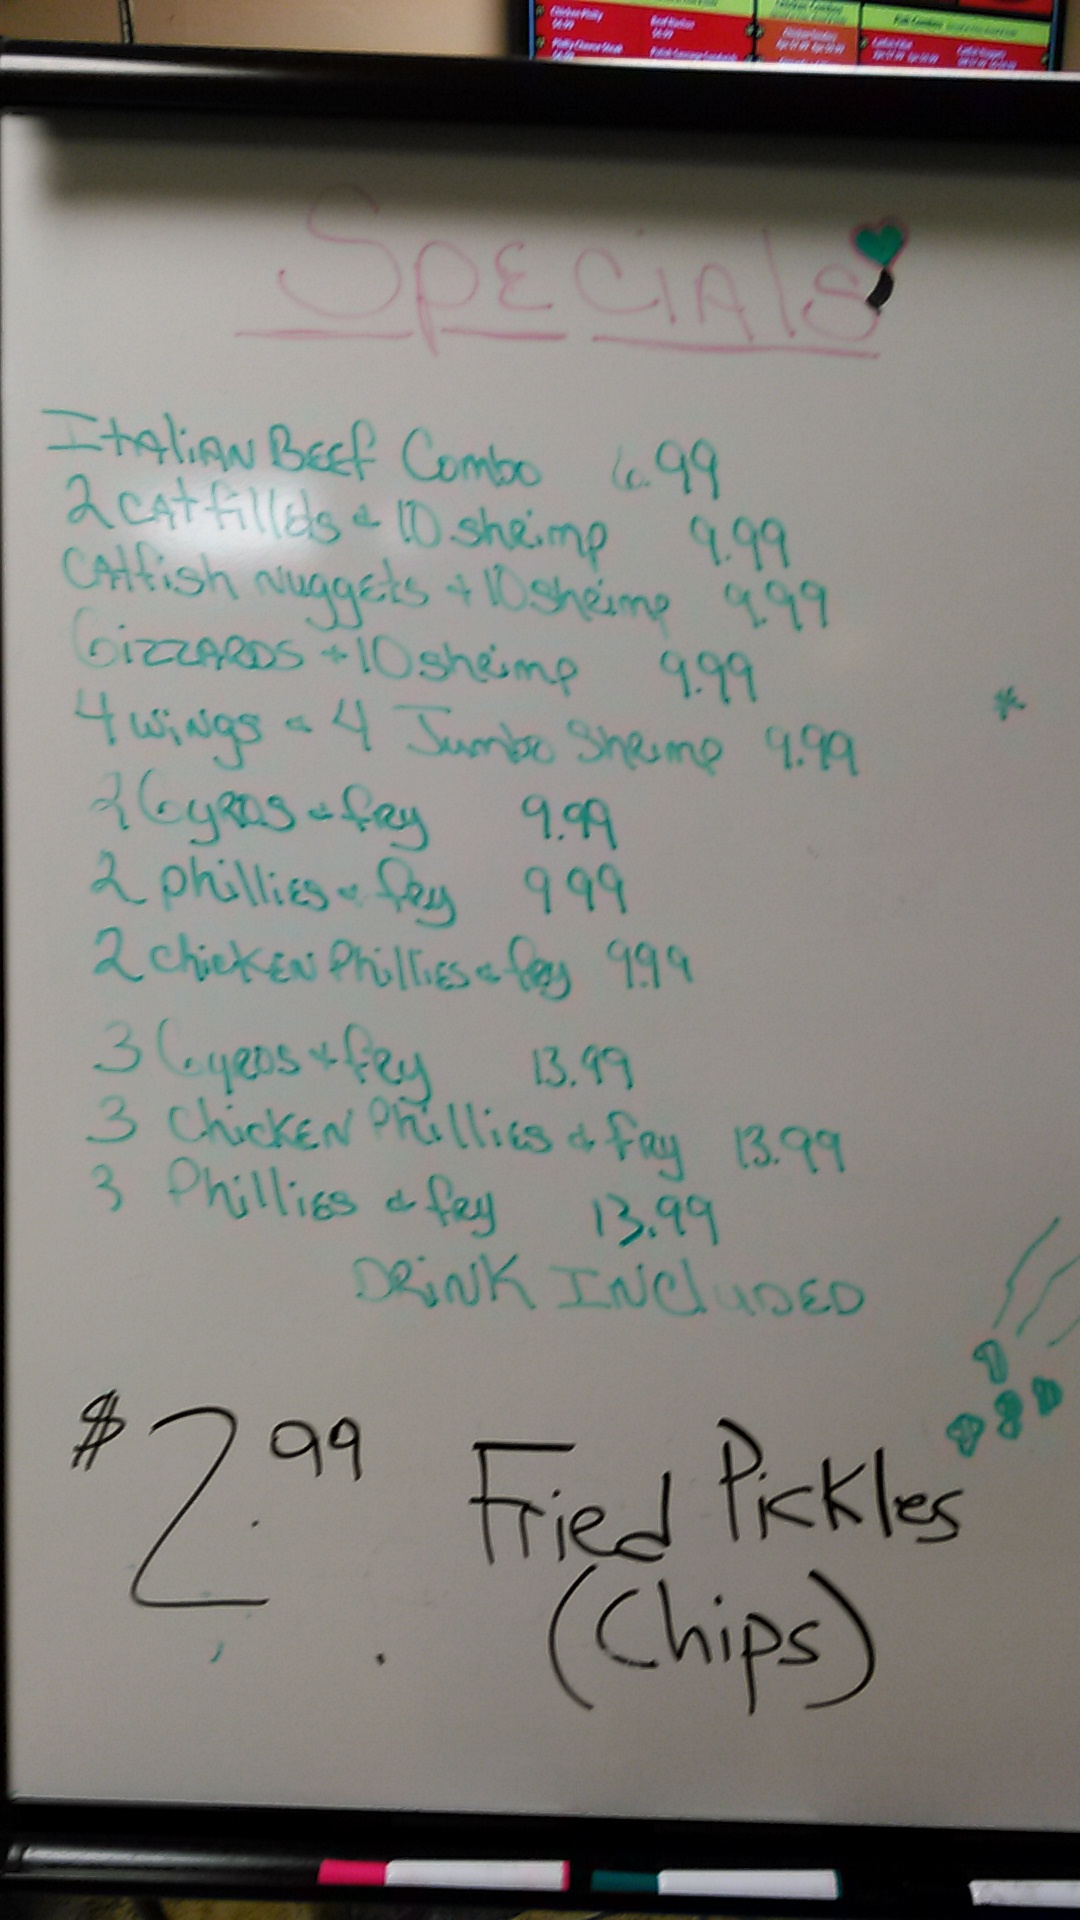 SpECIAls
ItAliAN BEEf Combo 6.99
2 CAtfillds & 10 shrimp 9.99
CAtfish Nuggets + 10 shrimp 9.99
GizzARDS + 10 shrimp 9.99
4 wiNgs & 4 Jumbo Shrimp 9.99
2 GyROS & fry 9.99
2 phillies & fry 9 99
2 chicKEN Phillies & fry 9.99
3 GyROS & fry 13.99
3 ChicKEN Phillies & fry 13.99
3 Phillies & fry 13.99
DRiNK INCluDED
$2.99 Fried Pickles
(Chips)